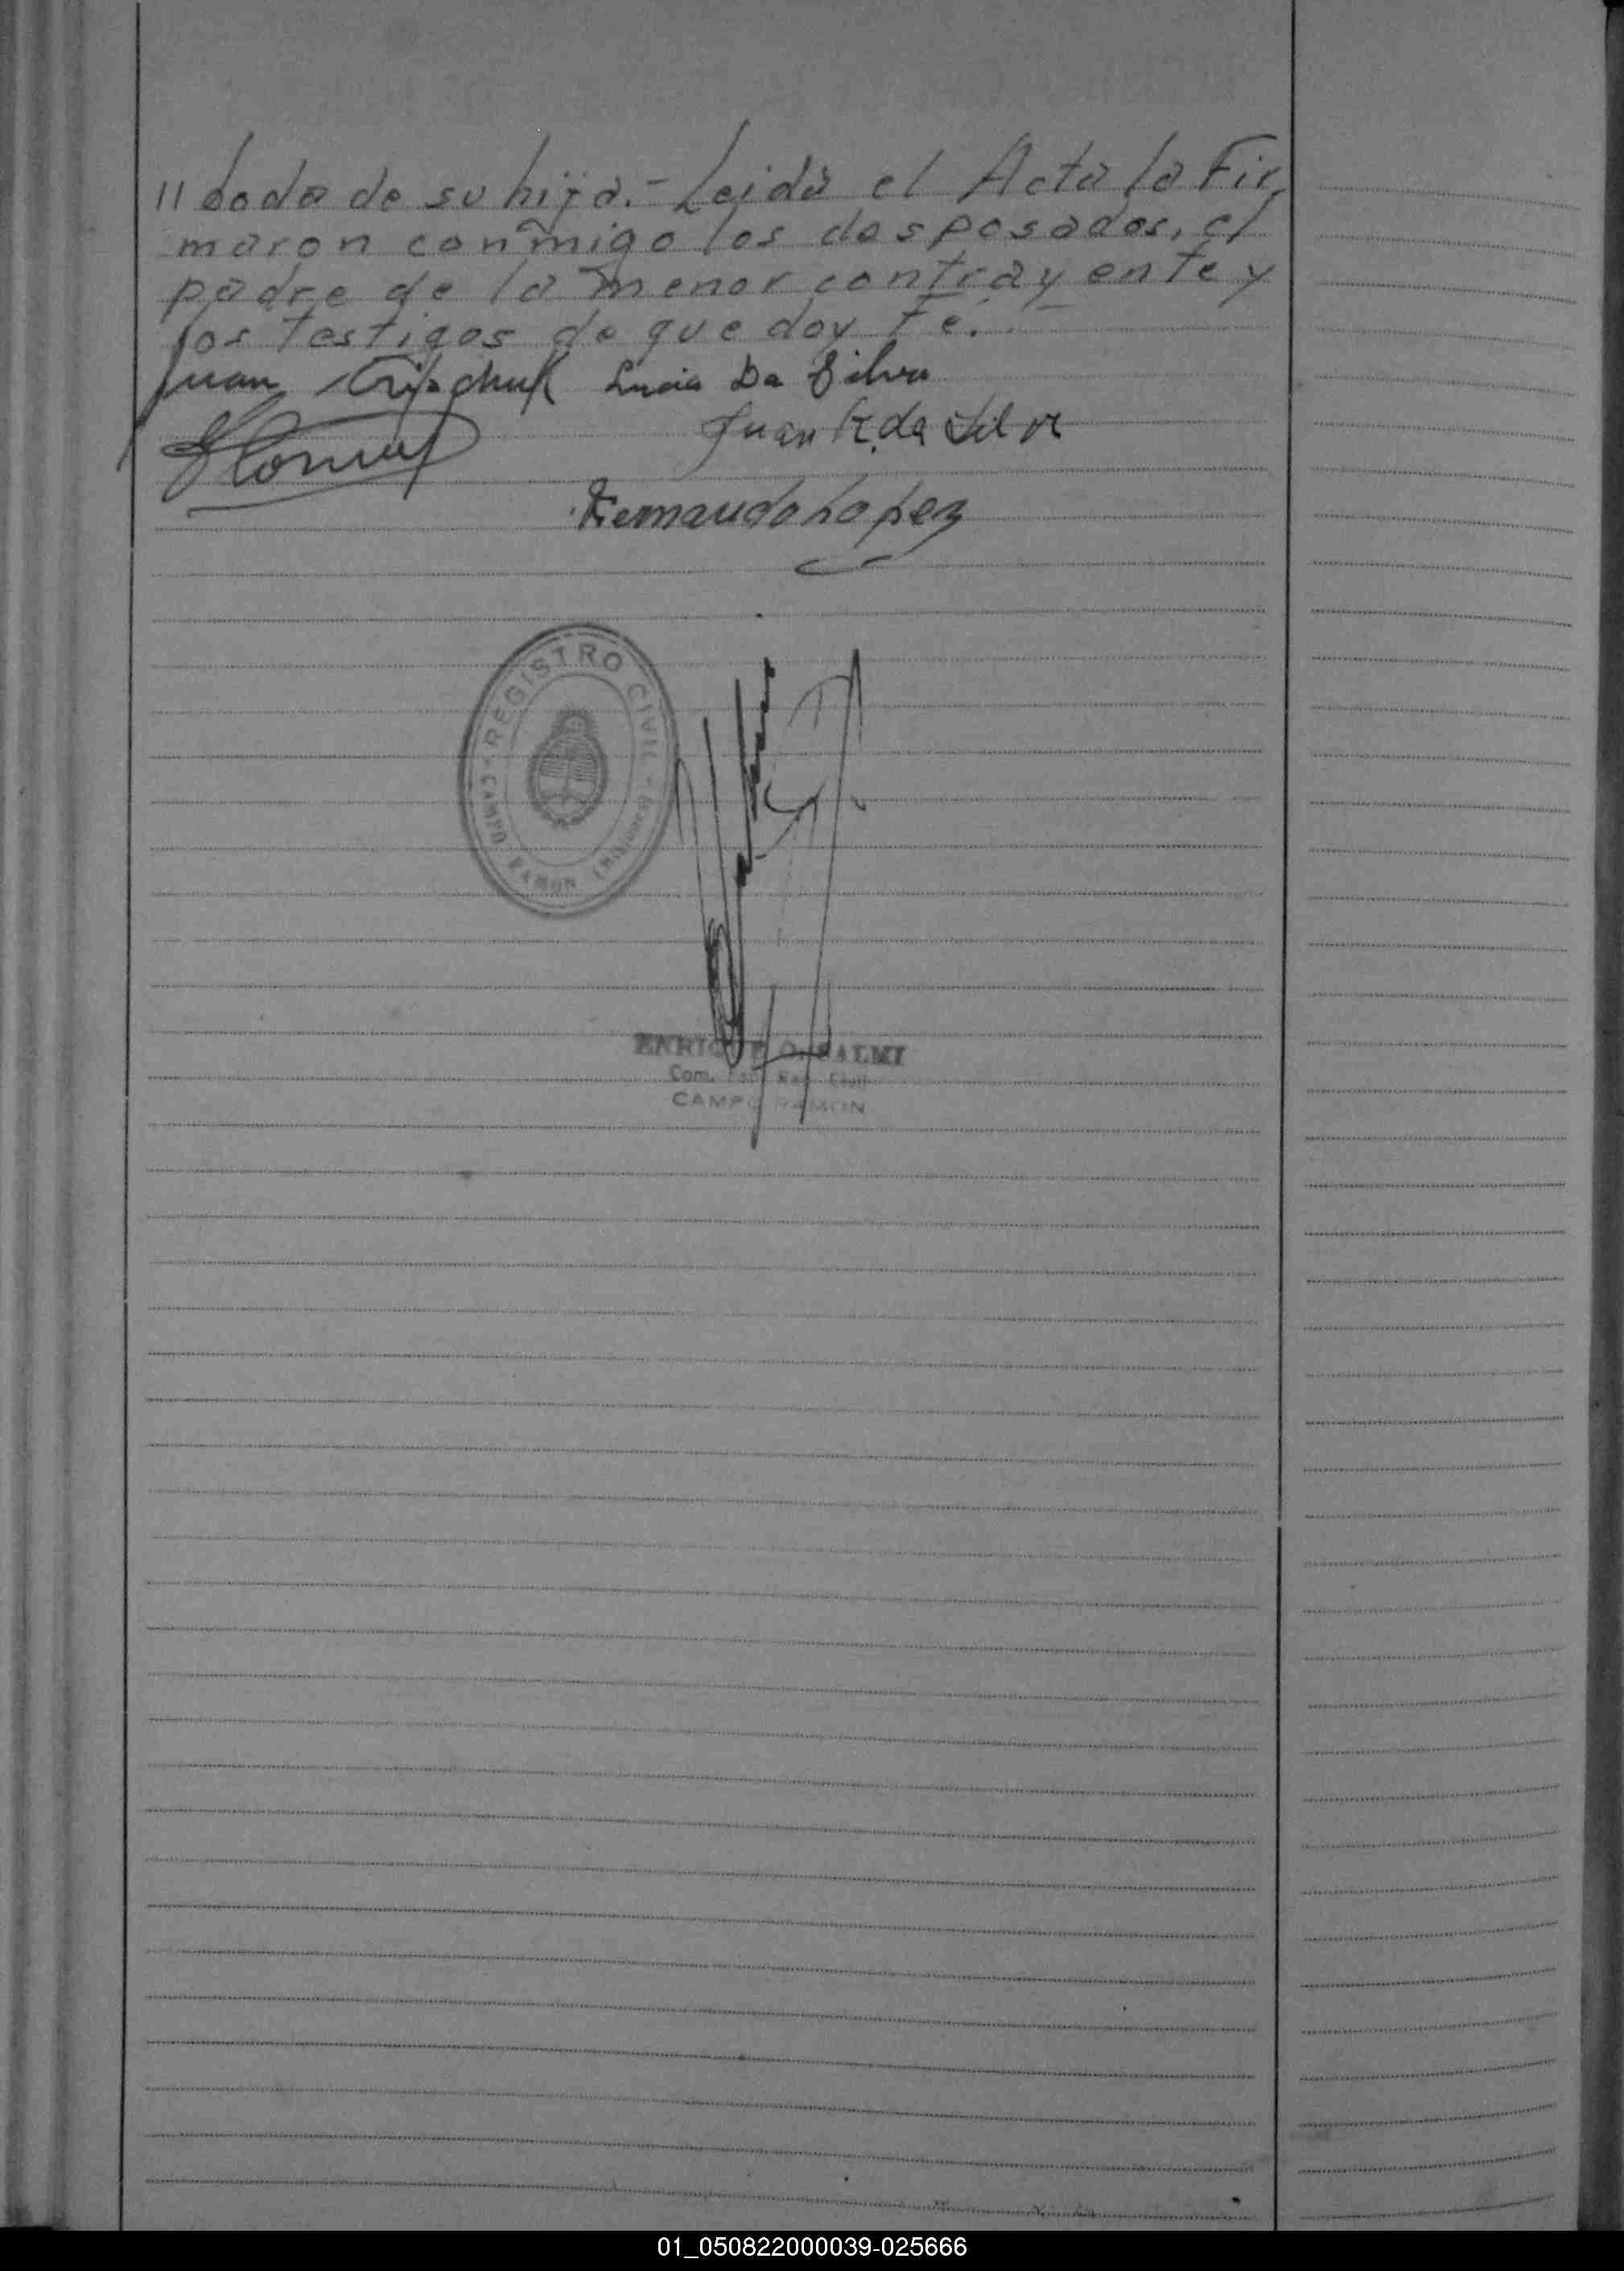 // boda de su hija.- Leida el Acta la Fir-
maron conmigo los desposados, el
padre de la menor contrayente y
los testigos de que doy Fe.-
Juan Lucia Da Silva
Juan R. da Silva
Fernando Lopez
REGISTRO CIVIL
CAMPO RAMON (Misiones)
ENRIQUE O. BALMI
CAMPO RAMON
01_050822000039-025666